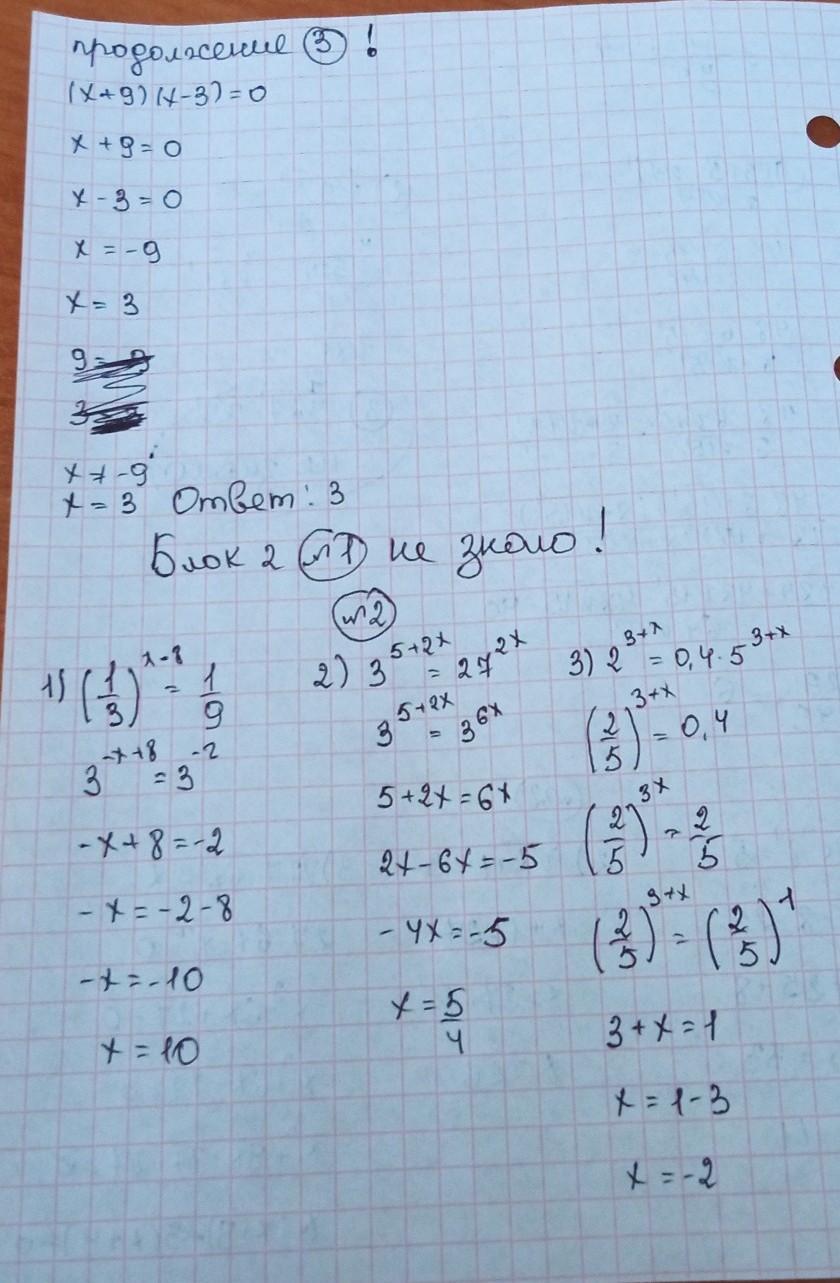 продолжение 3 !
(x+9)(x-3)=0
x+9=0
x-3=0
x=-9
x=3
x≠-9
x=3 Ответ: 3
Блок 2 №1 не знаю!
№2
1) (1/3)^(x-8) = 1/9
3^(-x+8) = 3^(-2)
-x+8=-2
-x=-2-8
-x=-10
x=10
2) 3^(5+2x) = 27^(2x)
3^(5+2x) = 3^(6x)
5+2x=6x
2x-6x=-5
-4x=-5
x=5/4
3) 2^(3+x) = 0,4·5^(3+x)
(2/5)^(3+x) = 0,4
(2/5)^(3x) = 2/5
(2/5)^(3+x) = (2/5)^1
3+x=1
x=1-3
x=-2